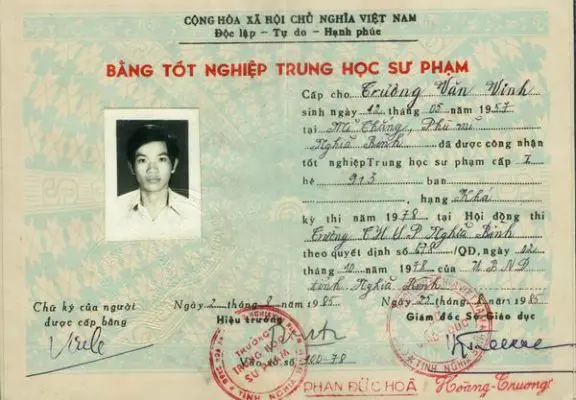 CỘNG HÒA XÃ HỘI CHỦ NGHĨA VIỆT NAM
Độc lập - Tự do - Hạnh phúc
BẰNG TỐT NGHIỆP TRUNG HỌC SƯ PHẠM
Cấp cho Trương Văn Vinh
sinh ngày 12 tháng 05 năm 1957
tại Mĩ Thắng, Phù Mĩ
Nghĩa Bình đã được công nhận
tốt nghiệp Trung học sư phạm cấp I
hệ 9+3 ban
, hạng Khá
kỳ thi năm 1978 tại Hội đồng thi
Trường THSP Nghĩa Bình
theo quyết định số 678 /QĐ, ngày
tháng 10 năm 1978 của UBND
tỉnh Nghĩa Bình
Chữ ký của người
được cấp bằng
Ngày 2 tháng 8 năm 1985
Hiệu trưởng
Vào sổ số 100-78
PHAN ĐỨC HOÁ
Ngày 22 tháng 8 năm 1985
Giám đốc Sở Giáo dục
Hoàng-Trương
TRƯỜNG
TRUNG HỌC
SƯ PHẠM